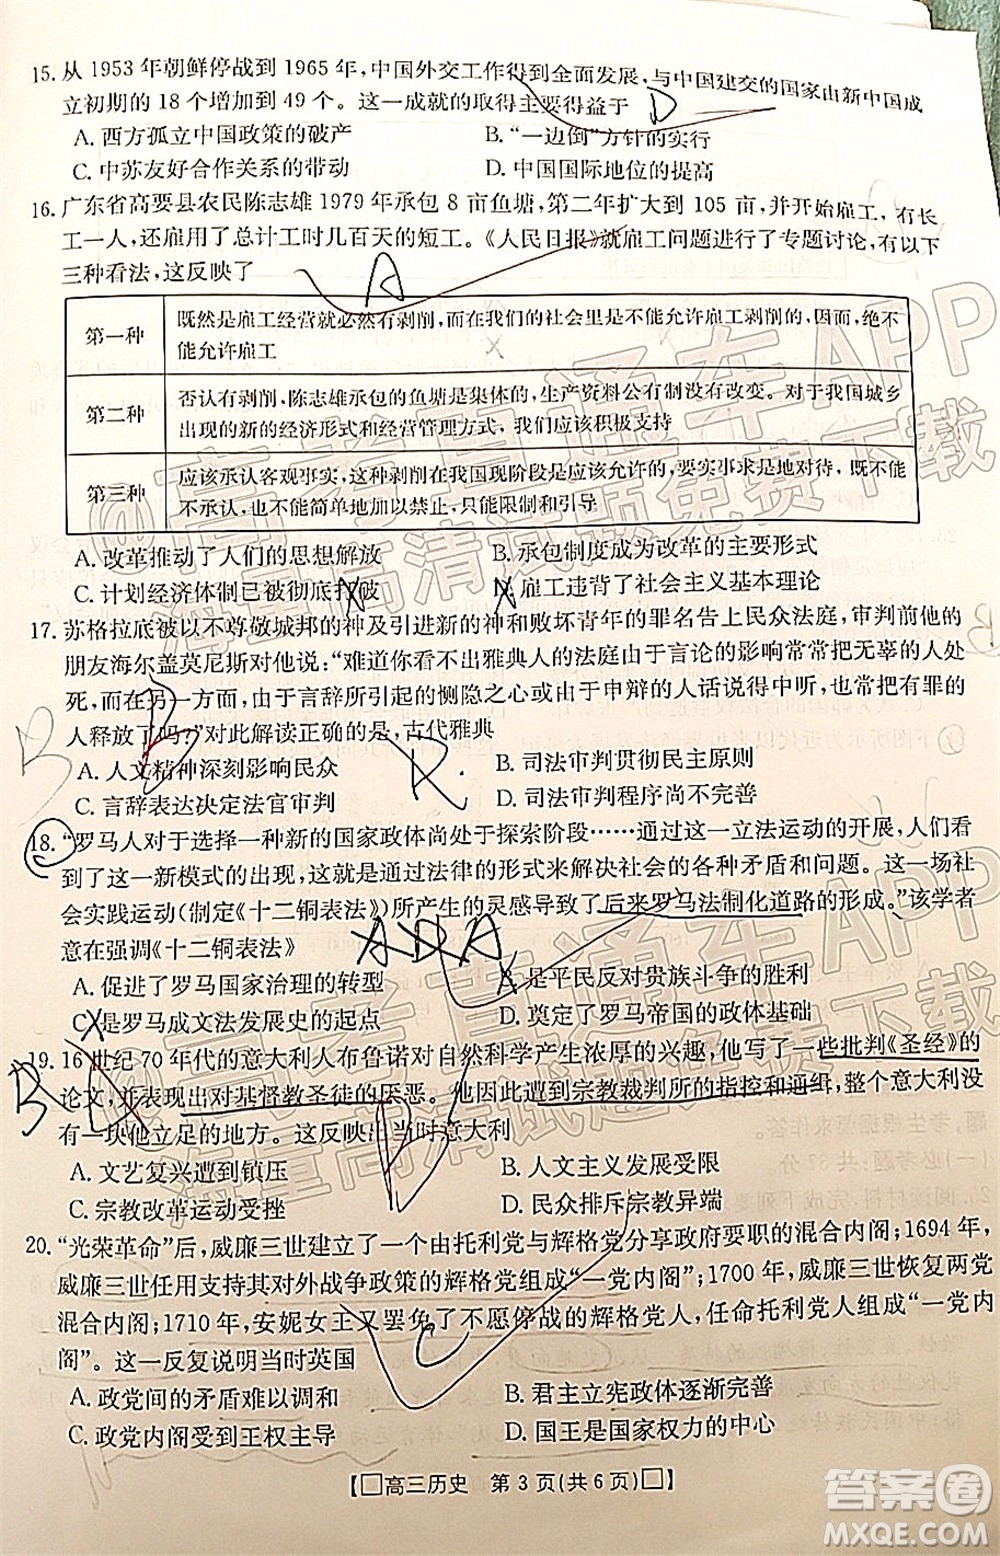 15. 从 1953 年朝鲜停战到 1965 年，中国外交工作得到全面发展，与中国建交的国家由新中国成
立初期的 18 个增加到 49 个。这一成就的取得主要得益于
D
A. 西方孤立中国政策的破产
B. “一边倒”方针的实行
C. 中苏友好合作关系的带动
D. 中国国际地位的提高
16. 广东省高要县农民陈志雄 1979 年承包 8 亩鱼塘，第二年扩大到 105 亩，并开始雇工，有长
工一人，还雇用了总计工时几百天的短工。《人民日报》就雇工问题进行了专题讨论，有以下
三种看法，这反映了
A
第一种
既然是雇工经营就必然有剥削，而在我们的社会里是不能允许雇工剥削的，因而，绝不
能允许雇工
第二种
否认有剥削，陈志雄承包的鱼塘是集体的，生产资料公有制没有改变。对于我国城乡
出现的新的经济形式和经营管理方式，我们应该积极支持
第三种
应该承认客观事实，这种剥削在我国现阶段是应该允许的，要实事求是地对待，既不能
不承认，也不能简单地加以禁止，只能限制和引导
A. 改革推动了人们的思想解放
B. 承包制度成为改革的主要形式
C. 计划经济体制已被彻底打破
D. 雇工违背了社会主义基本理论
17. 苏格拉底被以不尊敬城邦的神及引进新的神和败坏青年的罪名告上民众法庭，审判前他的
朋友海尔盖莫尼斯对他说：“难道你看不出雅典人的法庭由于言论的影响常常把无辜的人处
死，而在另一方面，由于言辞所引起的恻隐之心或由于申辩的人话说得中听，也常常把有罪的
人释放了吗？”对此解读正确的是，古代雅典
B
B
A. 人文精神深刻影响民众
B. 司法审判贯彻民主原则
C. 言辞表达决定法官审判
D. 司法审判程序尚不完善
18. “罗马人对于选择一种新的国家政体尚处于探索阶段……通过这一立法运动的开展，人们看
到了这一新模式的出现，即试图通过法律的形式来解决社会的各种矛盾和问题。这一次的社
会实践运动（制定《十二铜表法》）所产生的灵感导致了后来罗马法制化道路的形成。”该学者
意在强调《十二铜表法》
A. 促进了罗马国家治理的转型
B. 是平民反对贵族斗争的胜利
C. 是罗马成文法发展史的起点
D. 奠定了罗马帝国的政体基础
19. 16 世纪 70 年代的意大利人布鲁诺对自然科学产生浓厚的兴趣，他写了一些批判《圣经》的
论文，并表现出对基督教圣徒的厌恶。他因此遭到宗教裁判所的指控和通缉，整个意大利没
有一块他立足的地方。这反映出当时意大利
B
A. 文艺复兴遭到镇压
B. 人文主义发展受限
C. 宗教改革运动受挫
D. 民众排斥宗教异端
20. “光荣革命”后，威廉三世建立了一个由托利党与辉格党分享政府要职的混合内阁；1694 年，
威廉三世任用支持其对外战争政策的辉格党组成“一党内阁”；1700 年，威廉三世恢复两党
混合内阁；1710 年，安妮女王又罢免了不愿停战的辉格党人，任命托利党人组成“一党内
阁”。这一反复说明当时英国
C
A. 政党间的矛盾难以调和
B. 君主立宪政体逐渐完善
C. 政党内阁受到王权主导
D. 国王是国家权力的中心
【□高三历史 第 3 页（共 6 页）□】
@高考直通车APP
海量高清试题免费下载
@高考直通车APP
海量高清试题免费下载
答案圈
MXQE.COM